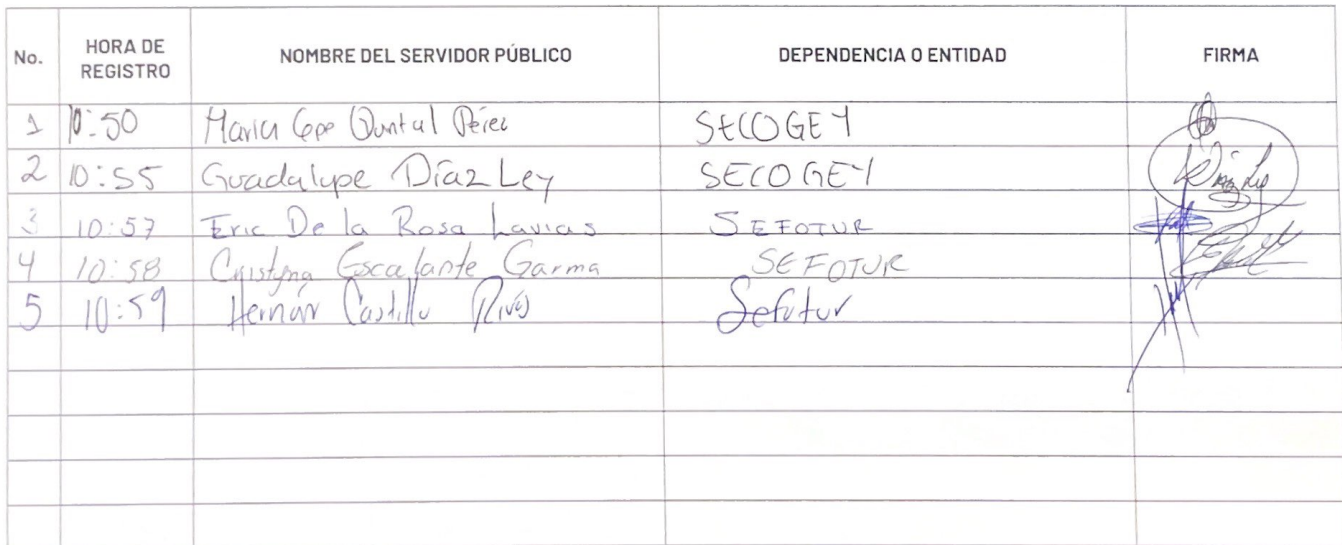 No. HORA DE REGISTRO NOMBRE DEL SERVIDOR PÚBLICO DEPENDENCIA O ENTIDAD FIRMA
1 10:50 Maria Gpe Quintal Pérez SECOGEY
2 10:55 Guadalupe Díaz Ley SECOGEY Díaz Ley
3 10:57 Eric De la Rosa Lavias SEFOTUR
4 10:58 Cristyna Escalante Garma SEFOTUR
5 10:59 Hernán Castillo Rivas Sefotur